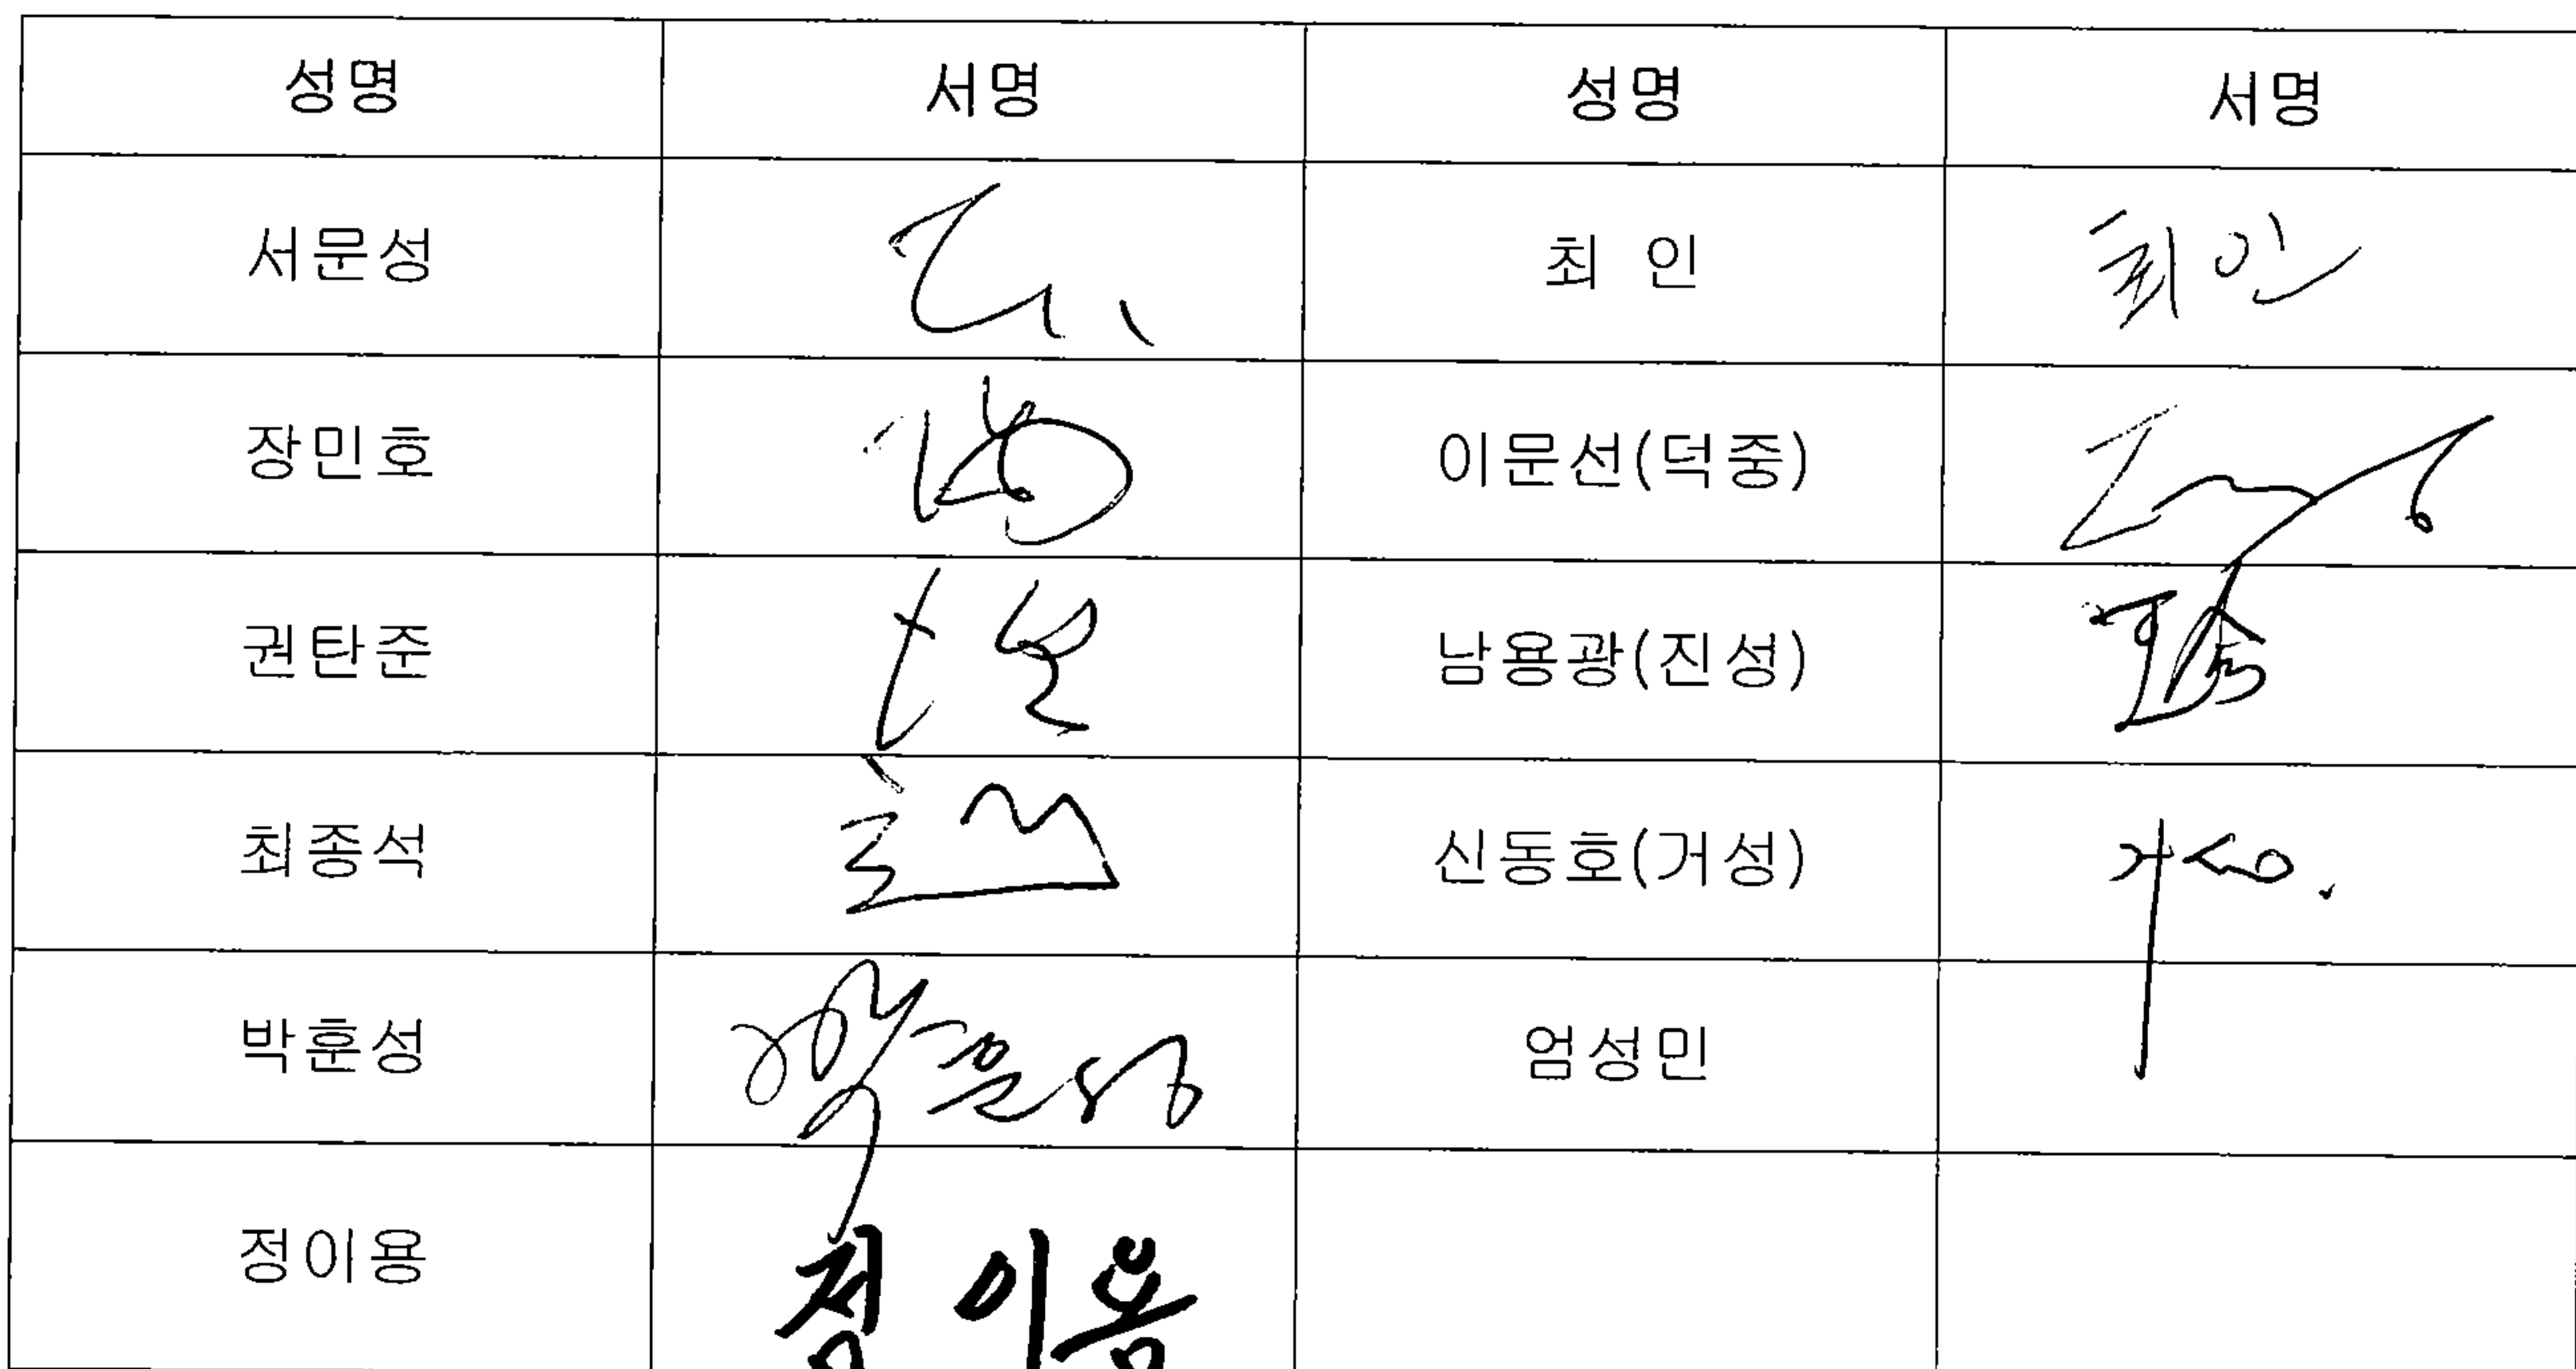 성명 서명 성명 서명
서문성 최 인 최인
장민호 이문선(덕중)
권탄준 남용광(진성)
최종석 신동호(거성) 거성.
박훈성 박훈성 엄성민
정이용 정이용